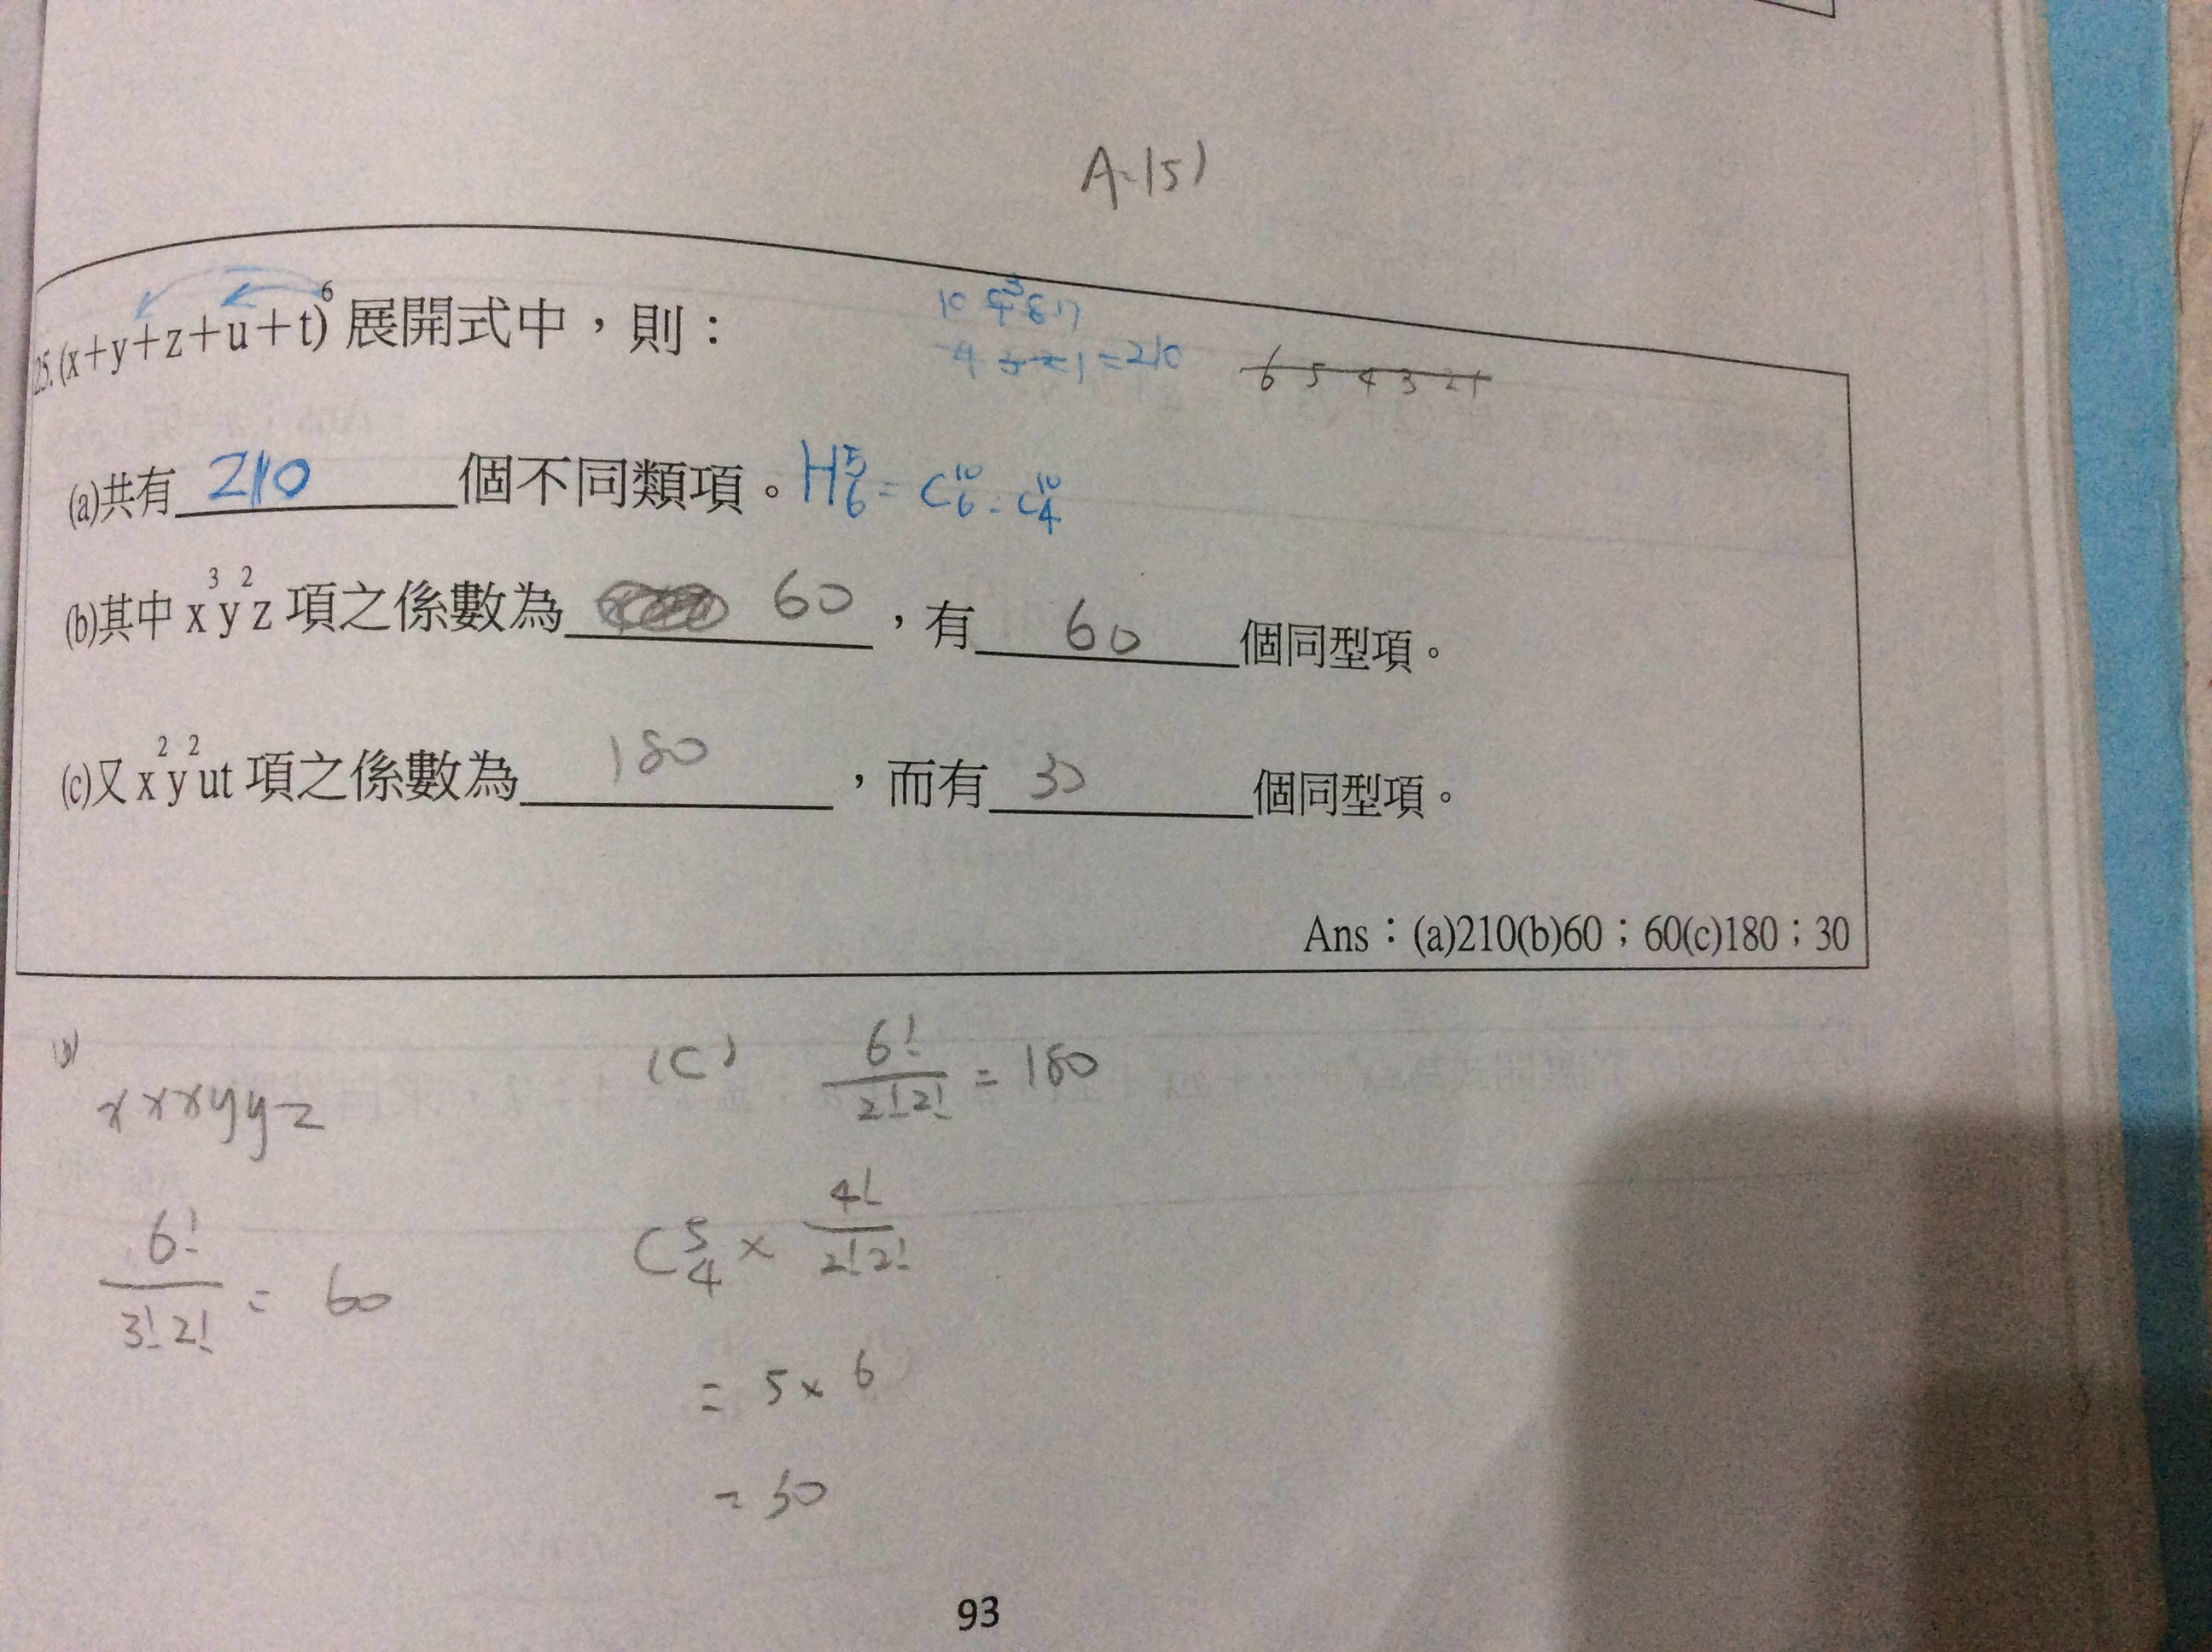 A=15)
10 9³ 8 7
4 3 2 1 = 210
6 5 4 3 2 1
25.(x+y+z+u+t)⁶ 展開式中，則：
(a)共有 210 個不同類項。 H⁵₆ = C¹⁰₆ = C¹⁰₄
(b)其中 x³y²z 項之係數為 60 ，有 60 個同型項。
(c)又 x²y²ut 項之係數為 180 ，而有 30 個同型項。
Ans：(a)210(b)60；60(c)180；30
(b)
xxxyyz
6!/3!2! = 60
(C) 6!/2!2! = 180
C⁵₄ × 4!/2!2!
= 5×6
= 30
93